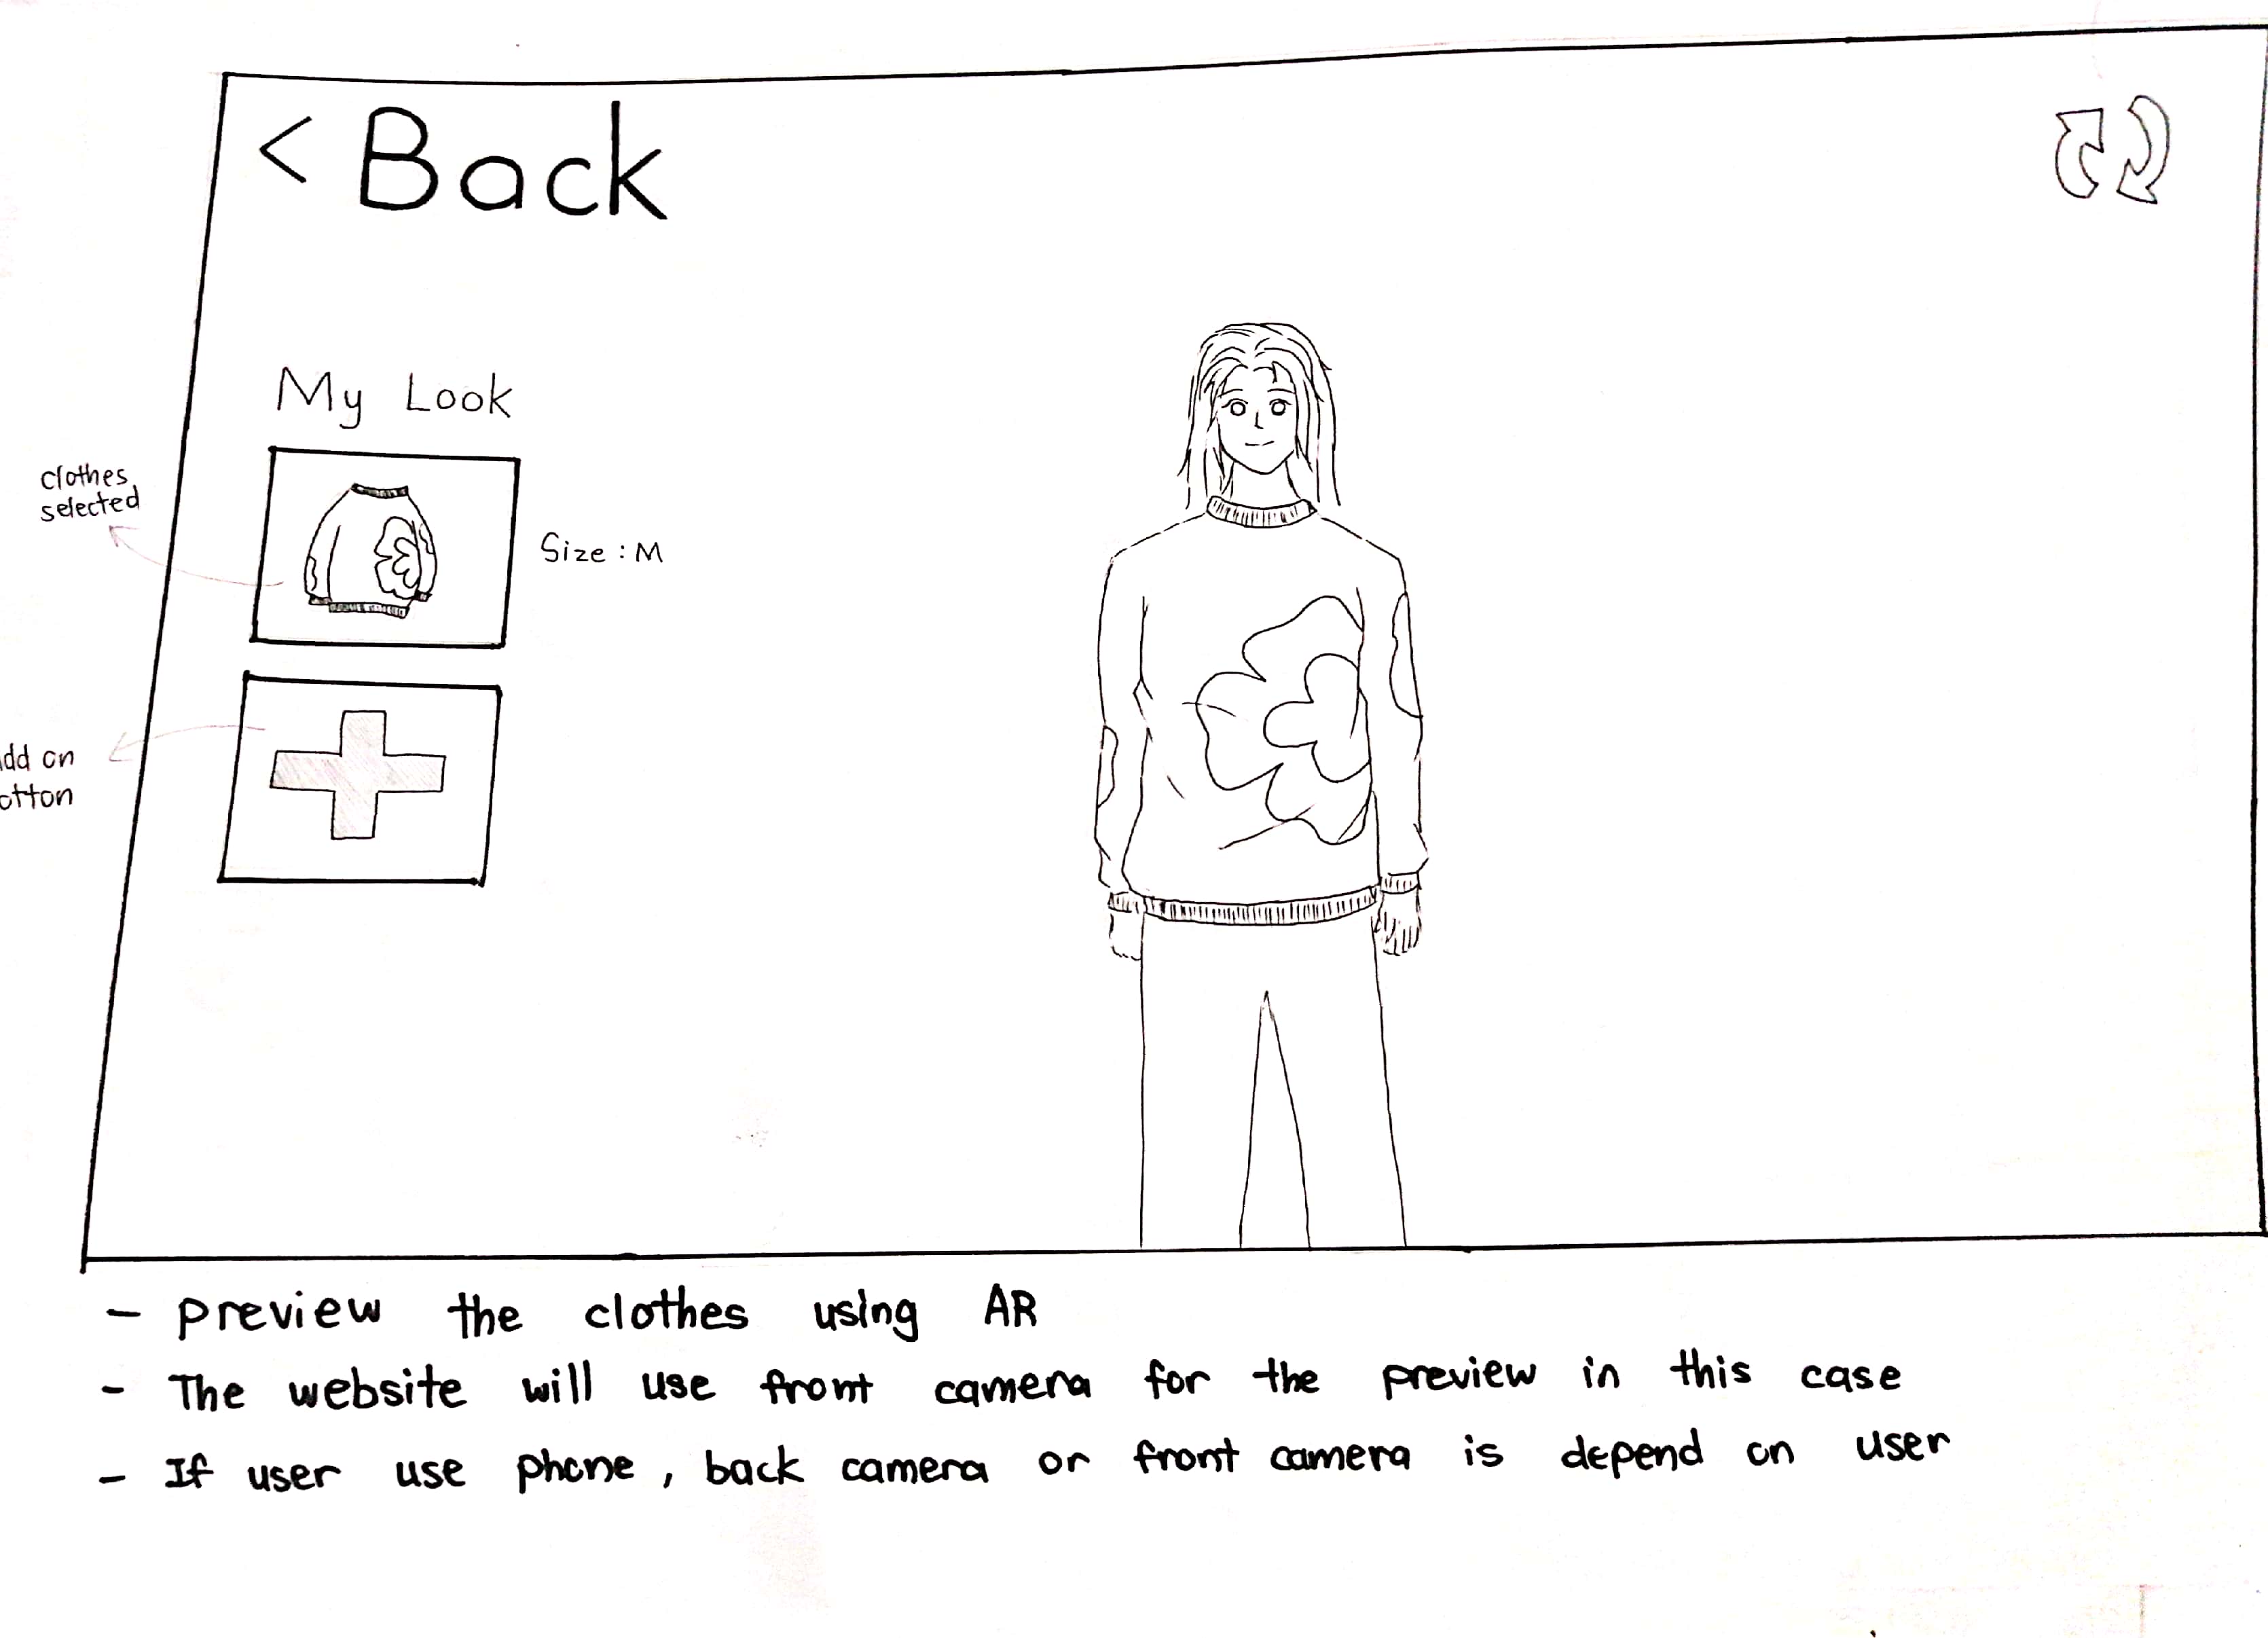 < Back
My Look
clothes
selected
Size : M
dd on
otton
- preview the clothes using AR
- The website will use front camera for the preview in this case
- If user use phone, back camera or front camera is depend on user